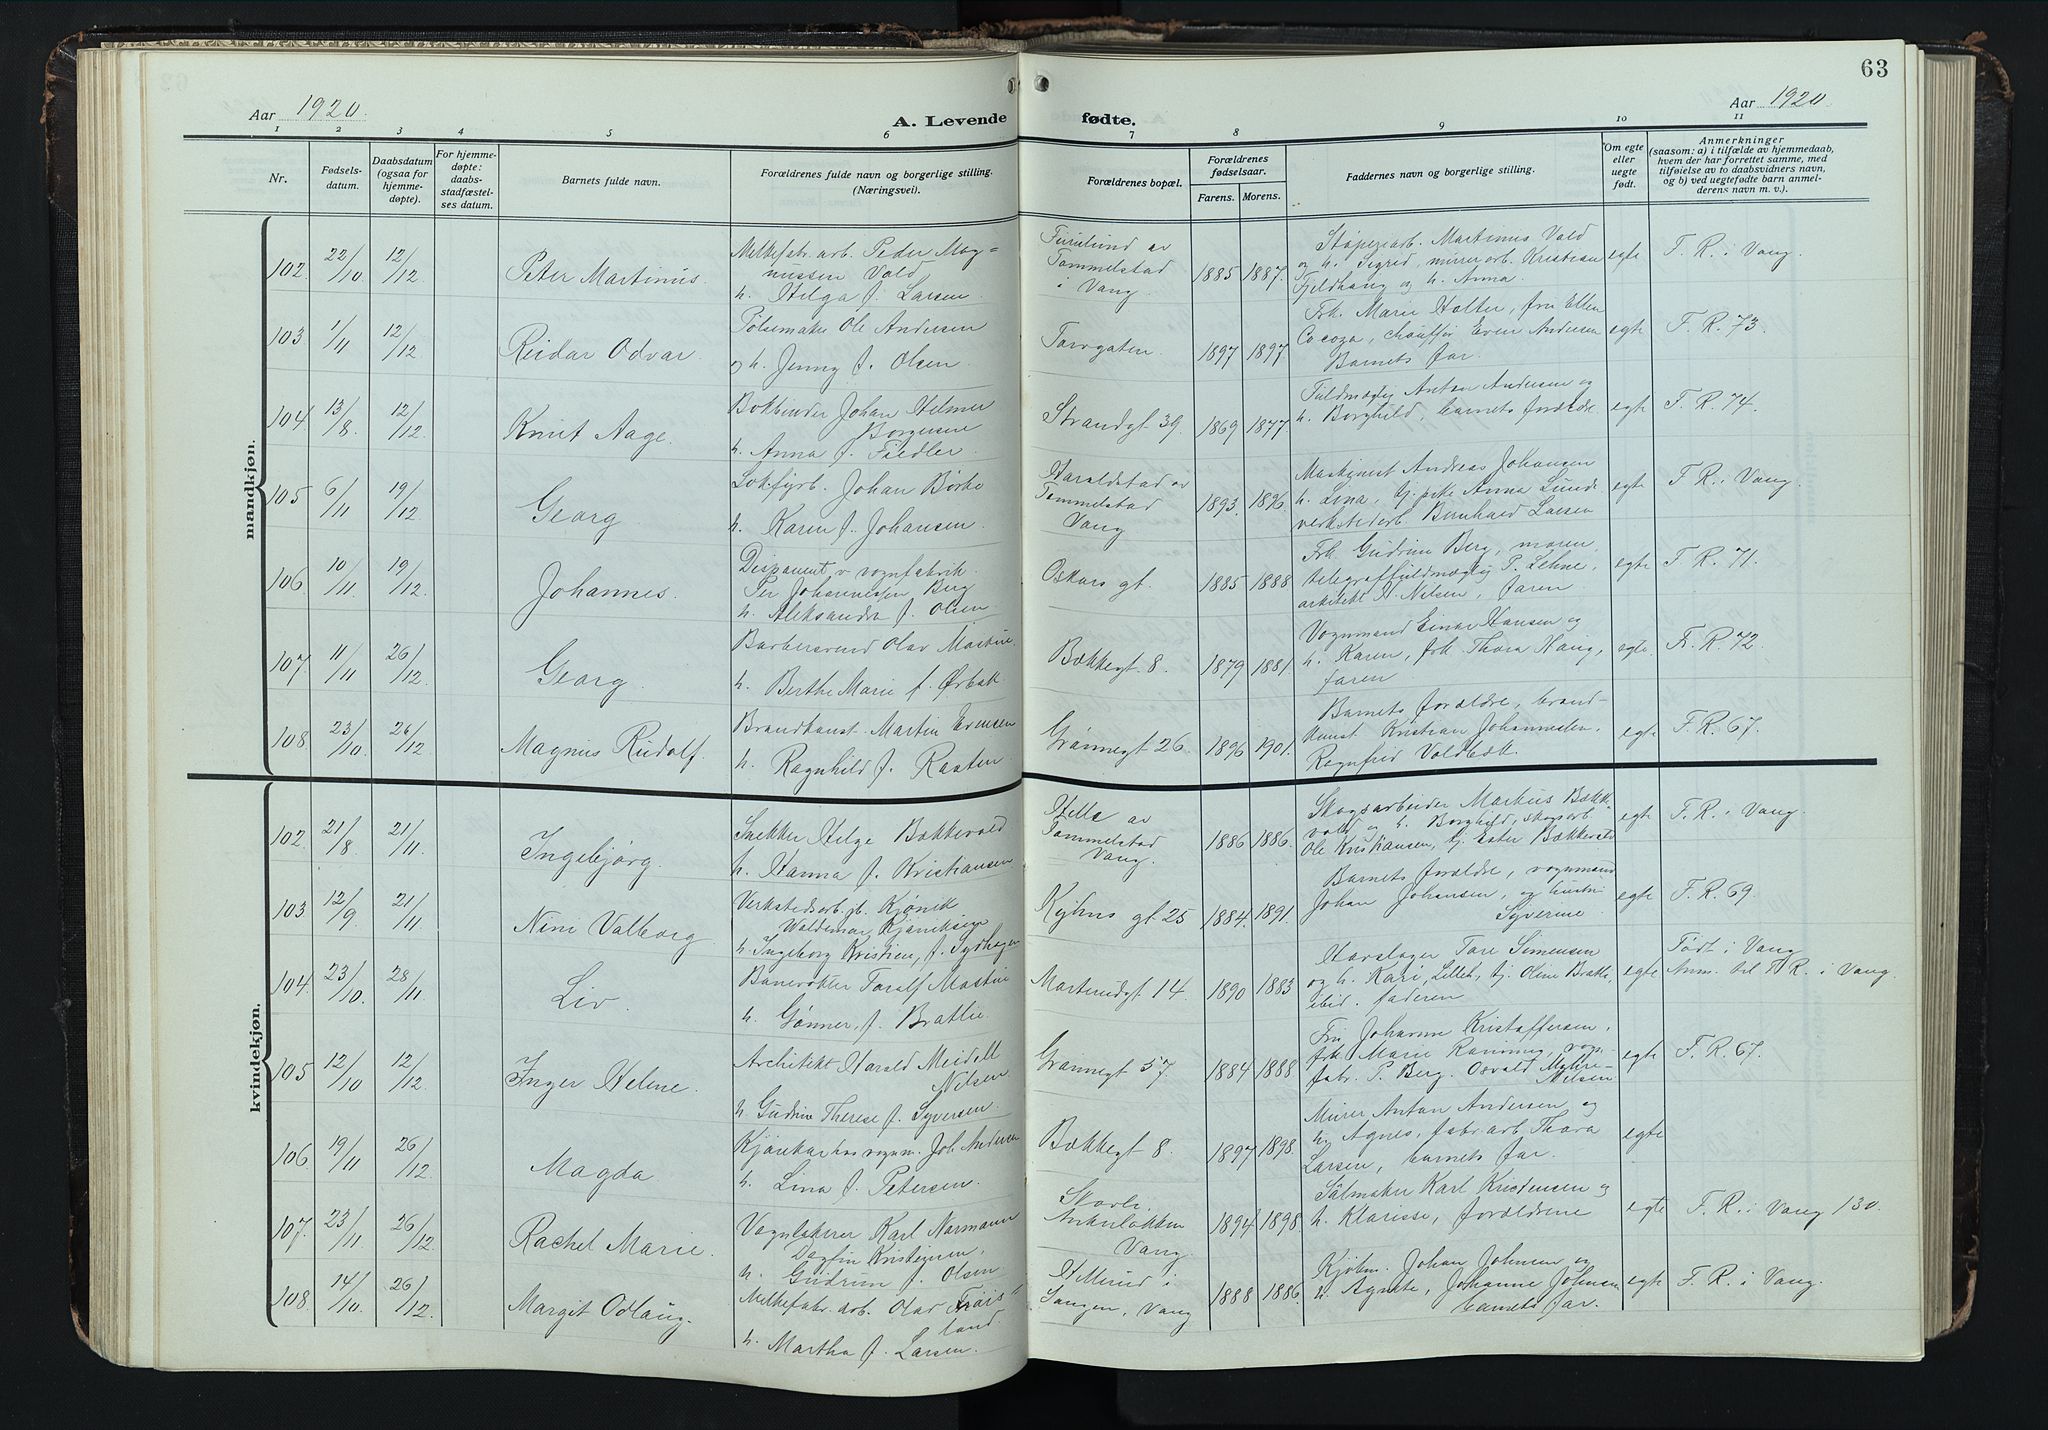 63
Aar 1920.
Aar 1920.
A. Levende fødte.
1 2 3 4 5 6 7 8 9 10 11
Nr.
Fødsels-
datum.
Daabsdatum
(ogsaa for
hjemme-
døpte).
For hjemme-
døpte:
daabs-
stadfæstel-
ses datum.
Barnets fulde navn.
Forældrenes fulde navn og borgerlige stilling.
(Næringsvei).
Forældrenes bopæl.
Forældrenes
fødselsaar.
Farens. Morens.
Faddernes navn og borgerlige stilling.
Om egte
eller
uegte
født.
Anmerkninger
(saasom: a) i tilfælde av hjemmedaab,
hvem der har forrettet samme, med
tilføielse av to daabsvidners navn,
og b) ved uegtefødte barn anmel-
derens navn m. v.).
mandkjøn.
102. 22/10. 12/12 Peter Martinus.
Melkefabr. arb. Peder Mag=
nussen Vold
h. Helga f. Larsen.
Furulund av
Tommelstad
i Vang.
1885 1887.
Støperarb. Martinus Vold
og h. Sigrid, murerarb. Kristian
Fjeldhaug og h. Anna.
egte F. R. i Vang.
103 1/4 12/12 Reidar Odvar.
Pølsemaker Ole Andersen
og h. Jenny f. Olsen.
Torvgaten.
1897 1897
Frk. Marie Holter, fru Ellen
Cocoza, chauffør Even Andersen
Barnets far.
egte F. R. 73.
104 13/8. 12/12. Knut Aage.
Bokbinder Johan Helmer
Borgersen
h. Anna f. Fiedler.
Strandgt 39.
1869 1877
Fuldmægtig Anton Andersen og
h. Borghild, barnets forældre.
egte F. R. 74.
105 6/11 19/12 Georg
Lokfyrb. Johan Børke
h. Karen f. Johansen.
Haraldstad av
Tommelstad
Vang
1893. 1896.
Maskinist Andreas Johansen
h. Lina, tj. pike Anna Lunde
verkstedarb. Bernhard Larsen
egte F. R. i Vang.
106 10/11. 19/12. Johannes.
Disponent v. vognfabrik.
Per Johannessen Berg
h. Aleksandra f. Olsen.
Oskars gt.
1885 1888
Frk. Gudrun Berg, moren,
telegraffuldmægtig P. Lehne,
arkitekt H. Nilsen, faren.
egte F. R. 71.
107. 11/11 26/12. Georg
Barbersvend Olav
h. Berthe Marie f. Ørbæk.
Bækkegt 8.
1879 1881.
Vognmand Einar Hansen og
h. Karen, frk. Thora Haug,
faren
egte. F. R. 72.
108. 23/10. 26/12. Magnus Rudolf.
Brandkonst. Martin Evensen
h. Ragnhild f. Raaten.
Grønnegt 26.
1896 1901.
Barnets forældre, brand-
konst Kristian Johannesen,
Ragnfrid Voldbæk.
egte F. R. 67.
kvindekjøn.
102. 21/8. 21/11. Ingebjørg.
Snekker Helge Bækkevold
h. Hanna f. Kristiansen
Helle av
Tommelstad
Vang.
1886 1886.
Skogsarbeider Markus Bække-
vold og h. Borghild, skogsarb
Ole Kristiansen, tj. Ester Bækkevold
egte F. R. i Vang.
103. 12/9. 21/11. Nini Valborg.
Verkstedsarb. jb. Kjønik
Waldemar
h. Ingeborg Kristine, f. Sydhagen
Kyhns gt 25
1884. 1891.
Barnets forældre, vognmand
Johan Johansen, og hustru
Syverine
egte F. R. 69.
104. 23/10. 28/11. Liv.
Banevokter Toralf
h. Gønner, f. Bratlie.
Morterudgt 14.
1890 1883
Hovslager Tore Simensen
og h. Kari, Lilleh, tj. Oline Bratlie,
ibid. faderen
egte
Født i Vang
Anm. til F. R. i Vang.
105 12/10 12/12. Inger Helene.
Architekt Harald Meidell
Nilsen
h. Gudrun Therese f. Syversen.
Grønnegt 57
1884 1888
Fru Johanne Kristoffersen,
frk Marie Rønning, vogn-
fabr. P. Berg. Osvald Myhre-
Nilsen
egte F. R. 67.
106. 19/11 26/12. Magda
Kjørekar hos vognm. Joh. Andersen
h. Lina f. Petersen.
Bækkegt 8.
1897 1898.
Murer Anton Andersen og
h. Agnes, fabr. arb Thora
Larsen, barnets far.
egte
107. 23/11 26/12. Rachel Marie.
Vognlakerer Karl Normann
Dagfin Kristensen,
h. Gudrun f. Olsen.
Skorli,
Ankerløkken
Vang.
1894 1898.
Salmaker Karl Kristensen og
h. Klarisse, forældrene
egte F. R. i Vang 130.
108. 14/10. 26/12. Margit Odlaug.
Melkefabr. arb. Olav Frøis-
land.
h. Martha f. Larsen.
Hillerud i
Sangen, Vang
1888 1886.
Kjøbm. Johan Johnsen og
h. Agnete, Johanne Johnsen
barnets far.
egte F. R. i Vang.